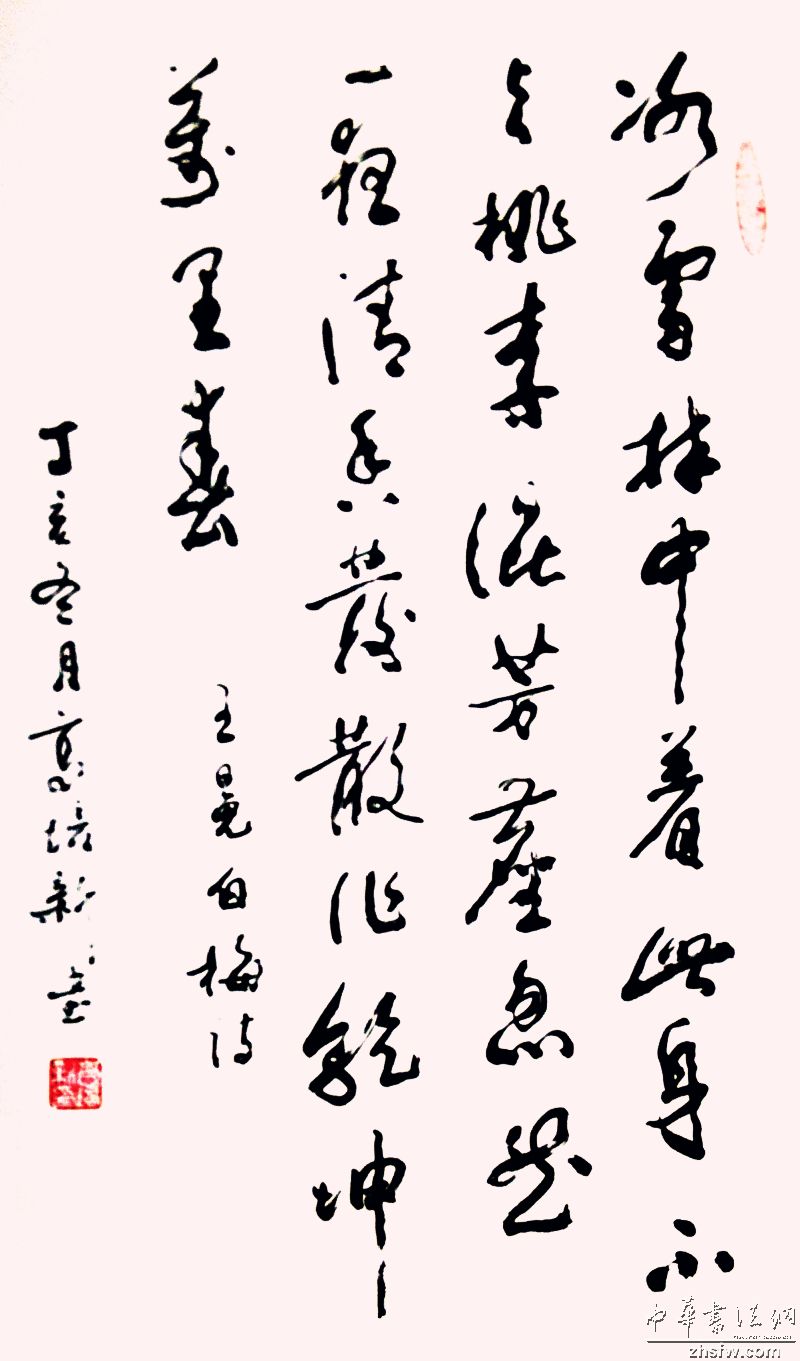 冰雪林中着此身不
与桃李混芳塵忽然
一夜清香發散作乾坤
萬里春
王冕白梅诗
丁亥冬月高培新
中華書法網
zhsfw.com